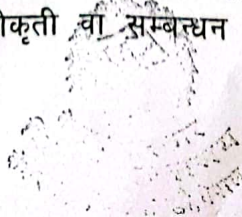 ीकृती वा सम्बन्धन